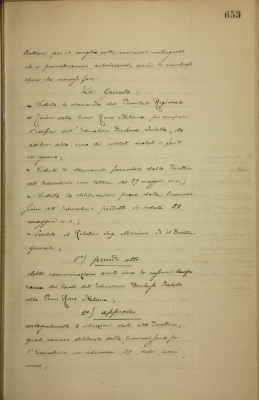 653
per il meglio nelle
che si
spese che
La Giunta:
- Veduta la domanda del Comitato Regionale
di della Croce Rossa Italiana per
l'edificio dell'Educatorio Duchessa Isabella, da
adibire alla cura dei soldati malati o feriti
in guerra;
- Veduta la domanda formulata dalla Direttrice
dell'Educatorio con lettera del 29 maggio u.s.;
- Veduta la deliberazione presa dalla Commis-
sione dell'Educatorio predetto in seduta 29
maggio u.s.;
- Sentito il Relatore Ing. ed il Direttore
Generale;
1°) prende atto
della comunicazione avuta circa la cessione
dei locali dell'Educatorio Duchessa Isabella
alla Croce Rossa Italiana;
2°) approva
integralmente le istruzioni date alla Direttrice,
quali vennero deliberate dalla Commissione per
l'Educatorio in adunanza 29 dello scorso
mese;